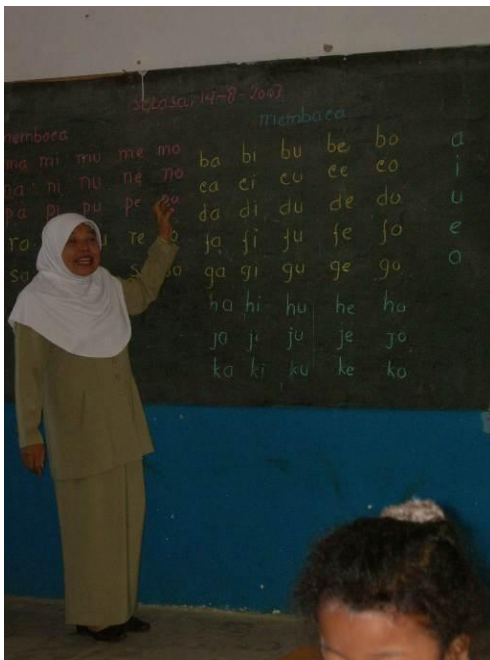 Selasa, 14-8-2007
membaca
ma mi mu me mo
na ni nu ne no
pa pi pu pe
ra re
sa
membaca
ba bi bu be bo
ca ci cu ce co
da di du de do
fa fi fu fe fo
ga gi gu ge go
ha hi hu he ho
ja ji ju je jo
ka ki ku ke ko
a
i
u
e
o